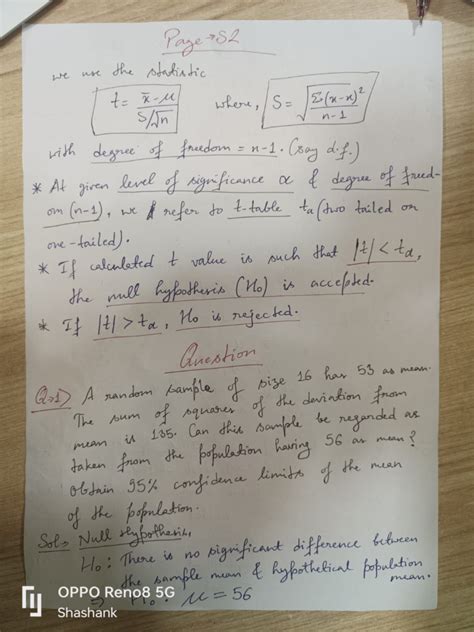 Page → S2
we use the statistic
t = x̄ - μ / S/√n where, S = √Σ(x - x̄)² / n-1
with degree of freedom = n-1. (say d.f.)
* At given level of significance α & degree of freed-
om (n-1), we refer to t-table tα (two tailed or
one-tailed).
* If calculated t value is such that |t| < tα,
the null hypothesis (H₀) is accepted.
* If |t| > tα, H₀ is rejected.
Question
Q.1) A random sample of size 16 has 53 as mean.
The sum of squares of the deviation from
mean is 135. Can this sample be regarded as
taken from the population having 56 as mean?
Obtain 95% confidence limits of the mean
of the population.
Sol → Null Hypothesis,
H₀ : There is no significant difference between
the sample mean & hypothetical population
mean.
⇒ H₀ : μ = 56
OPPO Reno8 5G
Shashank